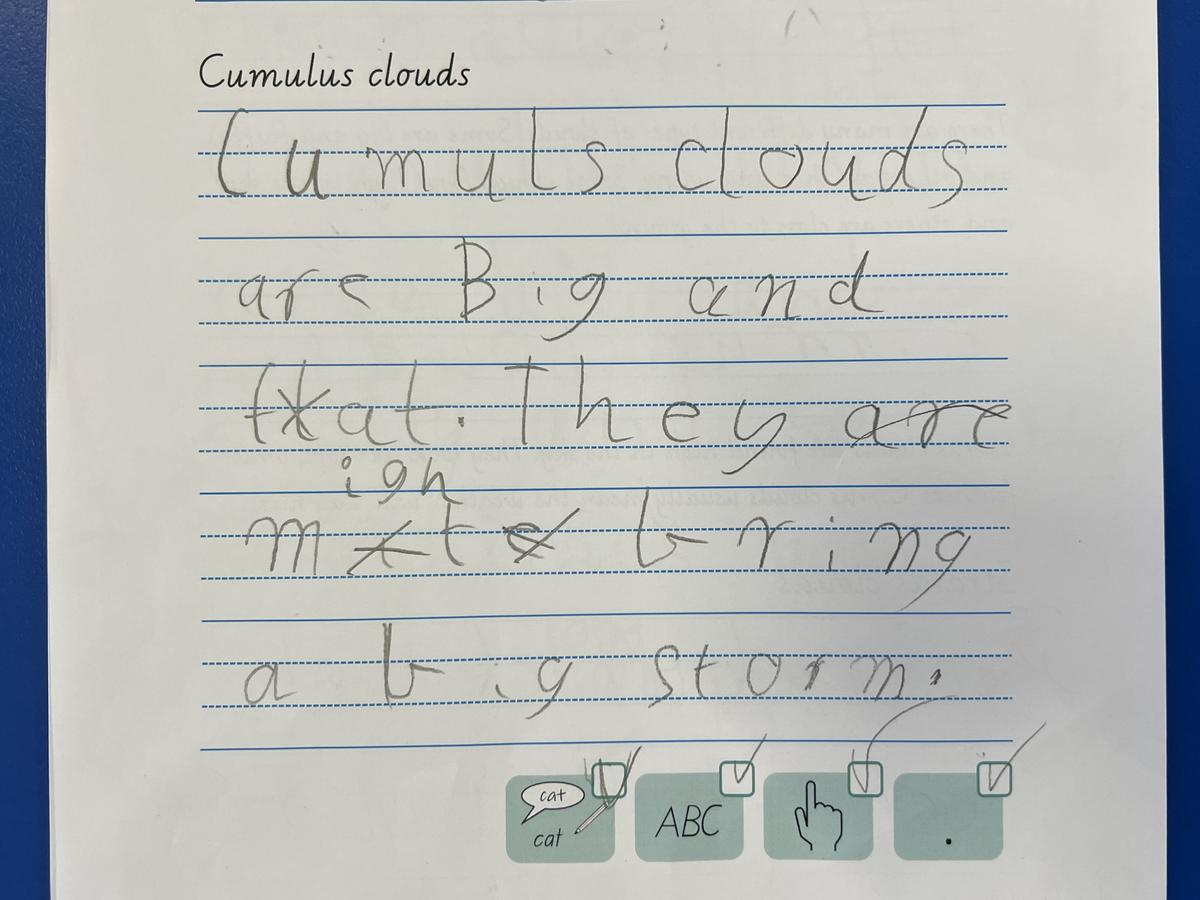 Cumulus clouds
Cumuls clouds
are Big and
fat. They are
ign
mt bring
a big storm.
cat
cat
ABC
.